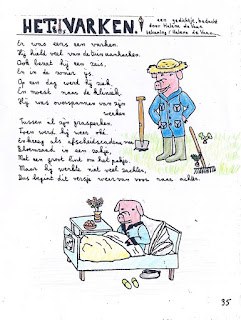 HET VARKEN.
een gedichtje, bedacht
door Helene de Vaan
tekening: Helene de Vaan.
Er was eens een varken.
Hij hield veel van de tuin aanharken.
Ook bezat hij een zeis.
En in de zomer ijs.
Op een dag werd hij ziek
En moest naar de kliniek
Hij was overspannen van zijn
werken
Tussen al zijn grasperken.
Toen werd hij weer
En kreeg als afscheidscadeau
Bloemzaad in een zakje.
Met een groot lint om het pakje.
Maar hij werkte niet veel zachter,
Dus begint dit versje weer van voor naar achter.
35